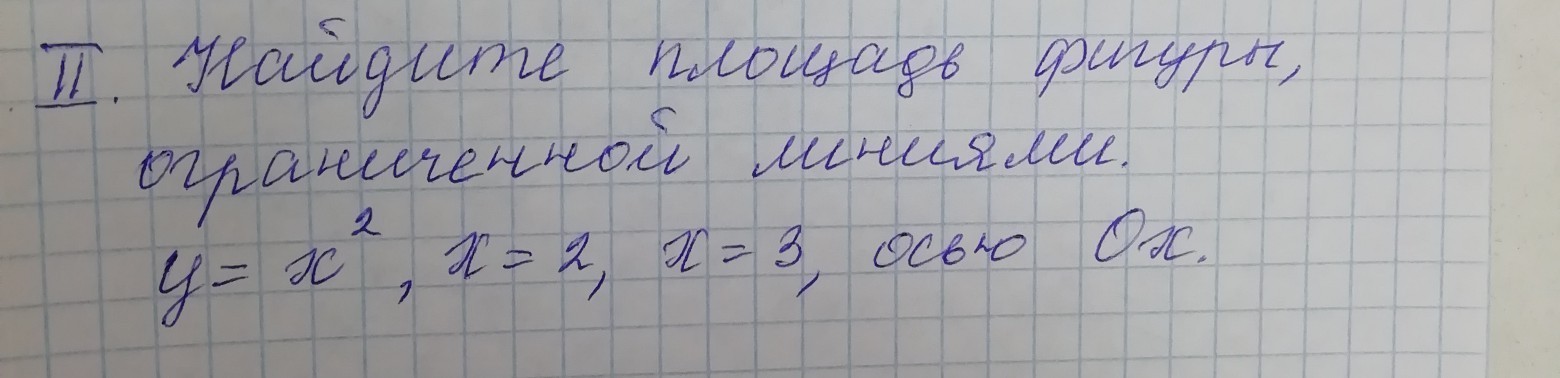 II. Найдите площадь фигуры,
ограниченной линиями.
y = x², x = 2, x = 3, осью Ох.